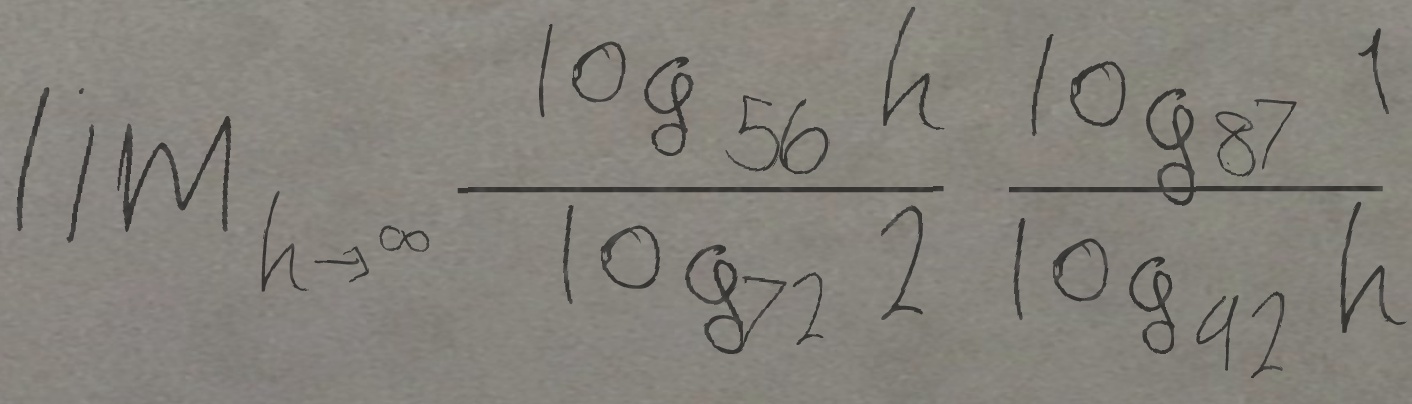 lim_{h→∞} \frac{log_{56} h}{log_{72} 2} \frac{log_{87} 1}{log_{92} h}